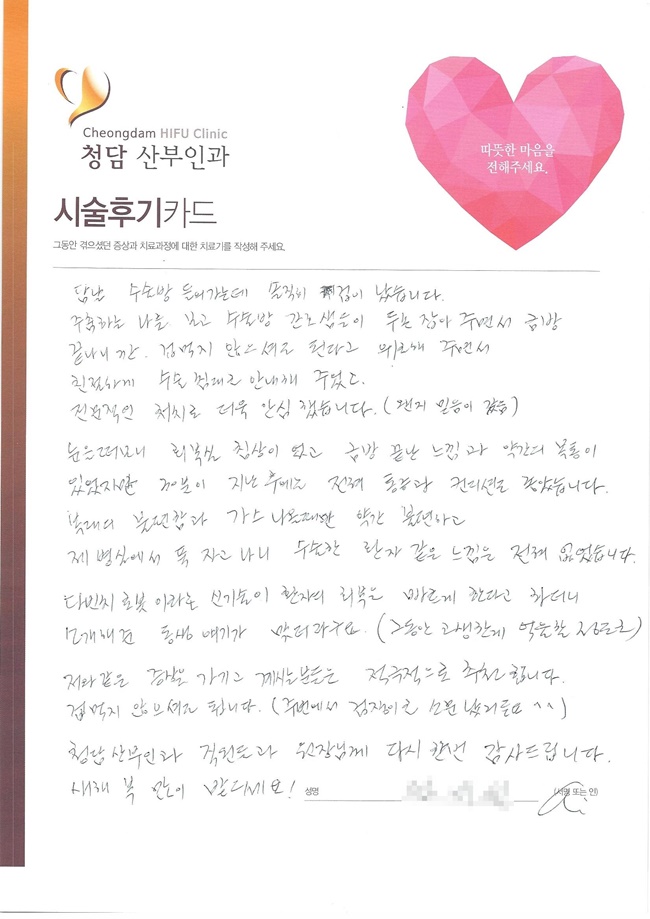 Cheongdam HIFU Clinic
청담 산부인과
따뜻한 마음을
전해주세요.
시술후기카드
그동안 겪으셨던 증상과 치료과정에 대한 치료기를 작성해 주세요.
담날 수술방 들어가는데 솔직히 걱정이 났습니다.
주춤하는 나를 보고 수술방 간호샘들이 두손 잡아 주면서 금방
끝나니깐. 겁먹지 않으셔도 된다고 위로해 주면서
친절하게 수술 침대로 안내해 주었고.
전문적인 처치로 더욱 안심 했습니다. (왠지 믿음이 갔음)
눈은떠보니 회복실 침상이 였고 금방 끝난 느낌과 약간의 복통이
있었지만 20분이 지난 후에는 전혀 통증과 컨디션도 좋았습니다.
복대의 불편함과 가스 나올때만 약간 불편하고
제 병실에서 푹 자고 나니 수술한 환자 같은 느낌은 전혀 없었습니다.
다빈치 로봇 이라는 신기술이 환자의 회복은 빠르게 한다고 하더니
소개해준 동생 얘기가 맞더라구요. (그동안 고생한게 억울할 정도로)
저와같은 증상은 가지고 계시는분들은 적극적으로 추천 합니다.
겁먹지 않으셔도 됩니다. (주변에서 겁쟁이로 소문 났거든요 ^^)
청담 산부인과 직원들과 원장님께 다시 한번 감사드립니다.
새해 복 많이 받으세요!
성명
(서명 또는 인)